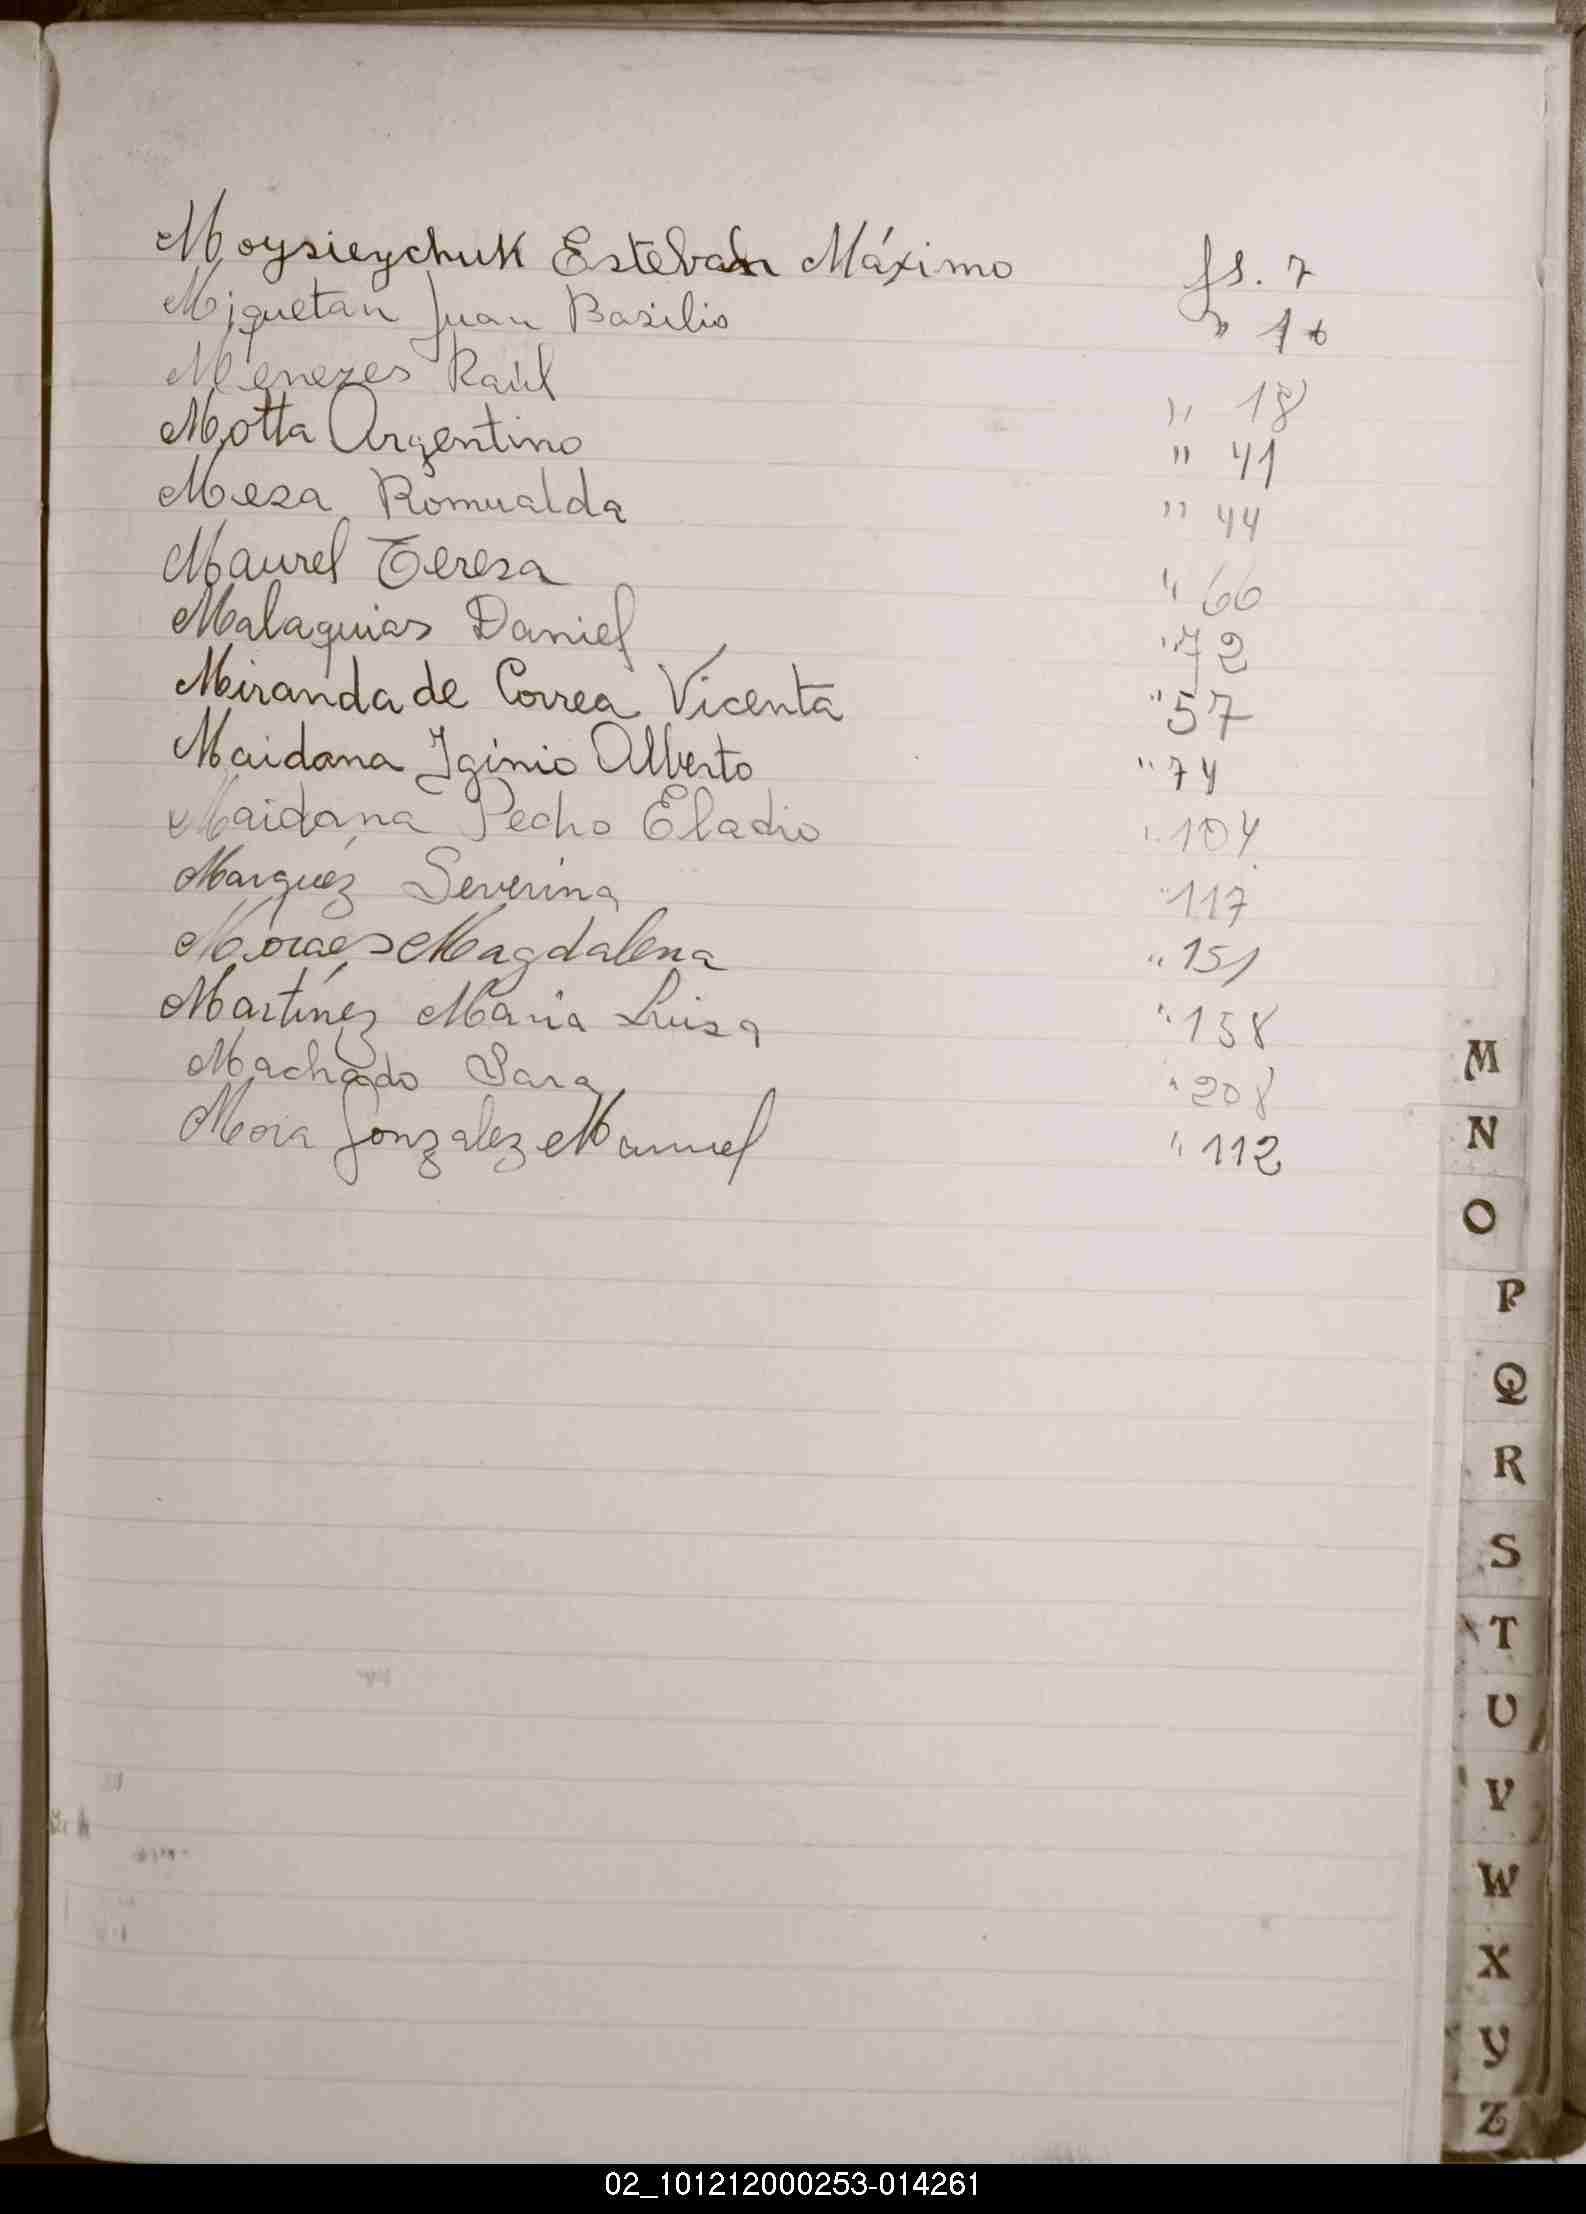 Moysieychuk Esteban Máximo fs. 7
Miquetan Juan Basilio " 16
Menezes Raúl " 18
Motta Argentino " 41
Meza Romualda " 44
Maurel Teresa " 66
Malaquias Daniel " 72
Miranda de Correa Vicenta " 57
Maidana Iginio Alberto " 74
Maidana Pedro Eladio " 104
Marquéz Severina " 117
Moraes Magdalena " 151
Martínez Maria Luisa " 158
Machado Sara " 208
Mora Gonzalez Manuel " 112
M
N
O
P
Q
R
S
T
U
V
W
X
Y
Z
02_101212000253-014261